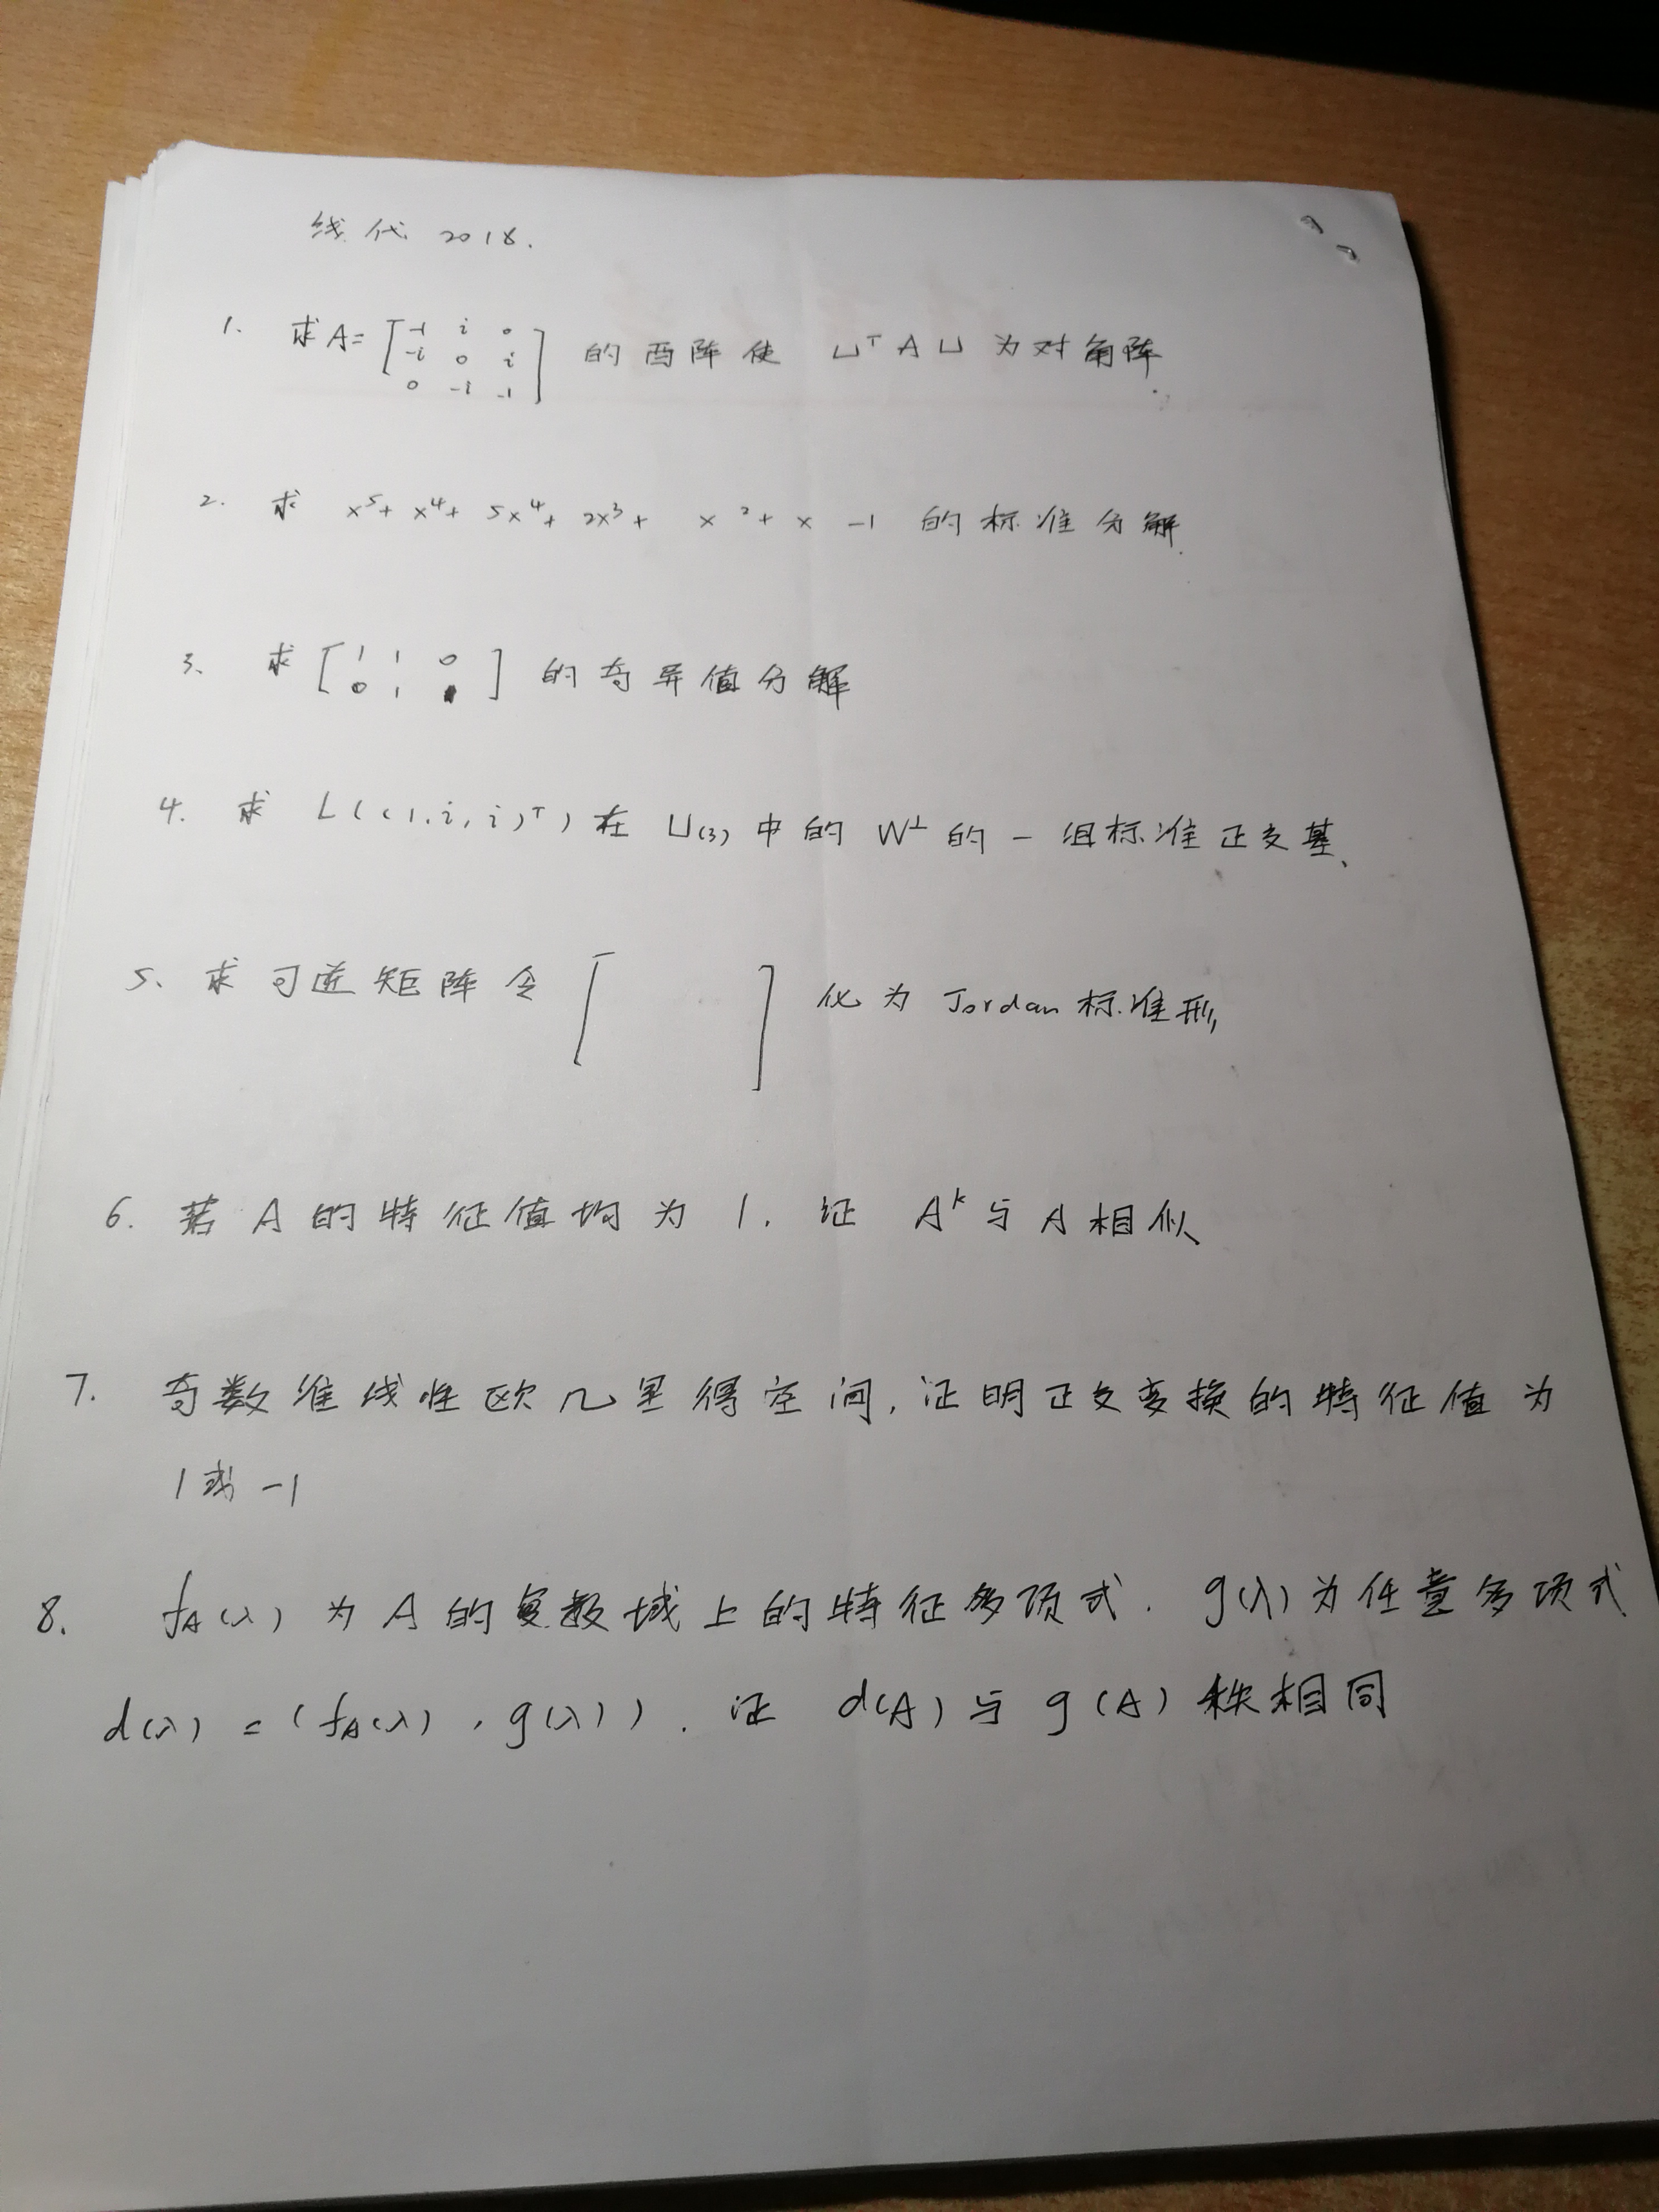 线代 2018.
1. 求 A = [-1 i 0
-i 0 i
0 -i -1] 的酉阵使 U^T A U 为对角阵.
2. 求 x^5 + x^4 + 5x^4 + 2x^3 + x^2 + x - 1 的标准分解.
3、 求 [1 1 0
0 1 ] 的奇异值分解
4. 求 L((1,i,i)^T) 在 U(3) 中的 W^⊥ 的一组标准正交基、
5、求可逆矩阵令 [ ] 化为 Jordan 标准形,
6. 若 A 的特征值均为 1. 证 A^k 与 A 相似
7. 奇数维线性欧几里得空间,证明正交变换的特征值为
1 或 -1
8. f_A(λ) 为 A 的复数域上的特征多项式. g(λ) 为任意多项式
d(λ) = (f_A(λ), g(λ)). 证 d(A) 与 g(A) 秩相同